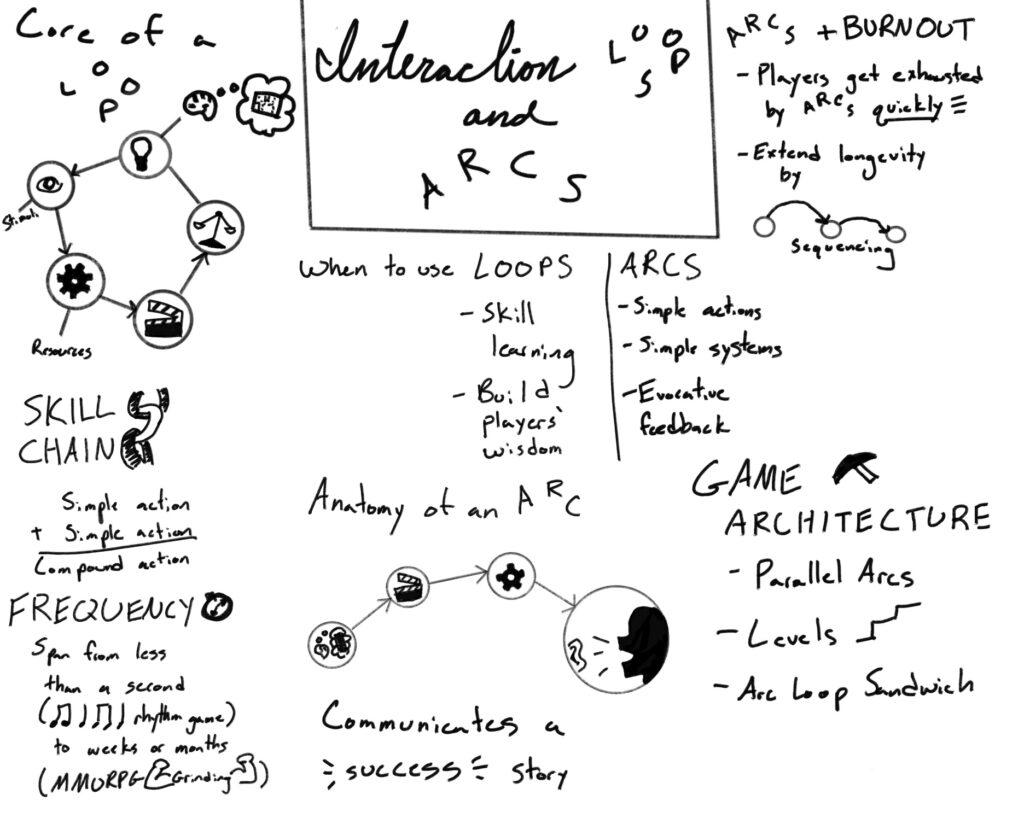 Interaction LOOPS
and
ARCS
Core of a
LOOP
Stimuli
Resources
SKILL
CHAIN
Simple action
+ Simple action
Compound action
FREQUENCY
Span from less
than a second
(rhythm game)
to weeks or months
(MMORPG Grinding)
When to use LOOPS
- Skill
learning
- Build
players'
wisdom
ARCS
- Simple actions
- Simple systems
- Evocative
feedback
Anatomy of an ARC
Communicates a
success story
ARCS + BURNOUT
- Players get exhausted
by ARCS quickly
- Extend longevity
by
Sequencing
GAME
ARCHITECTURE
- Parallel Arcs
- Levels
- Arc Loop Sandwich